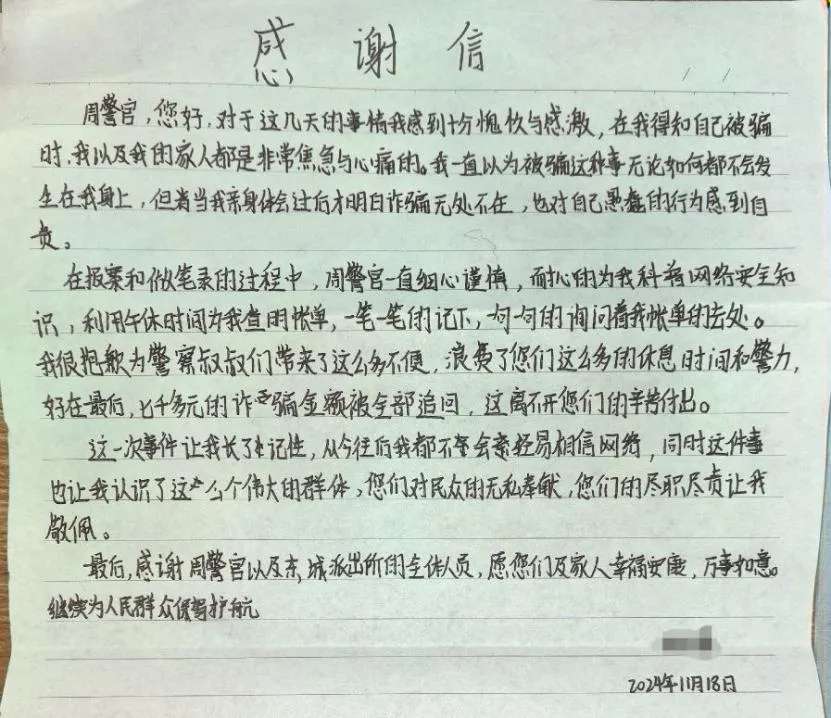 感谢信
周警官，您好，对于这几天的事情我感到十分愧疚与感激，在我得知自己被骗
时，我以及我的家人都是非常焦急与心痛的。我一直以为被骗这种事无论如何都不会发
生在我身上，但当我亲身体会过后才明白诈骗无处不在，也对自己愚蠢的行为感到自
责。
在报案和做笔录的过程中，周警官一直细心谨慎，耐心的为我科普网络安全知
识，利用午休时间为我查明帐单，一笔一笔的记下，一句一句的询问着我帐单的去处。
我很抱歉为警察叔叔们带来了这么多不便，浪费了您们这么多的休息时间和警力，
好在最后，七千多元的诈骗金额被全部追回，这离不开您们的辛苦付出。
这一次事件让我长了记性，从今往后我都不会轻易相信网络，同时这件事
也让我认识了这么个伟大的群体，您们对民众的无私奉献，您们的尽职尽责让我
敬佩。
最后，感谢周警官以及东城派出所的全体人员，愿您们及家人幸福安康，万事如意。
继续为人民群众保驾护航
2024年11月18日